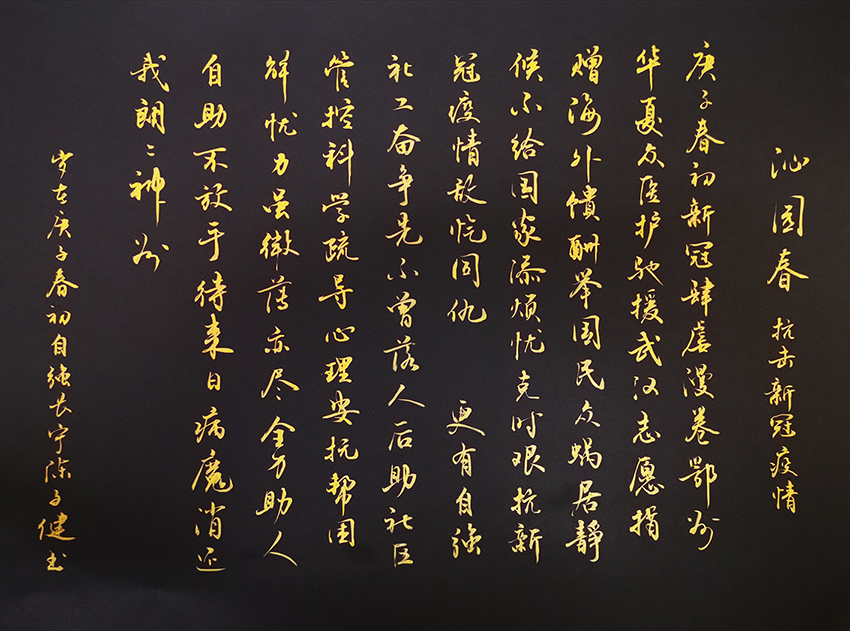 沁园春 抗击新冠疫情
庚子春初新冠肆虐漫卷鄂州
华夏众医护驰援武汉志愿捐
赠海外馈酬举国民众蜗居静
候不给国家添烦忧克时艰抗新
冠疫情敌忾同仇 更有自强
社工奋争先不曾落人后助社区
管控科学疏导心理安抚帮困
解忧力虽微薄亦尽全力助人
自助不放手待来日病魔消还
我朗々神州
岁在庚子春初自强长宁陈子健书